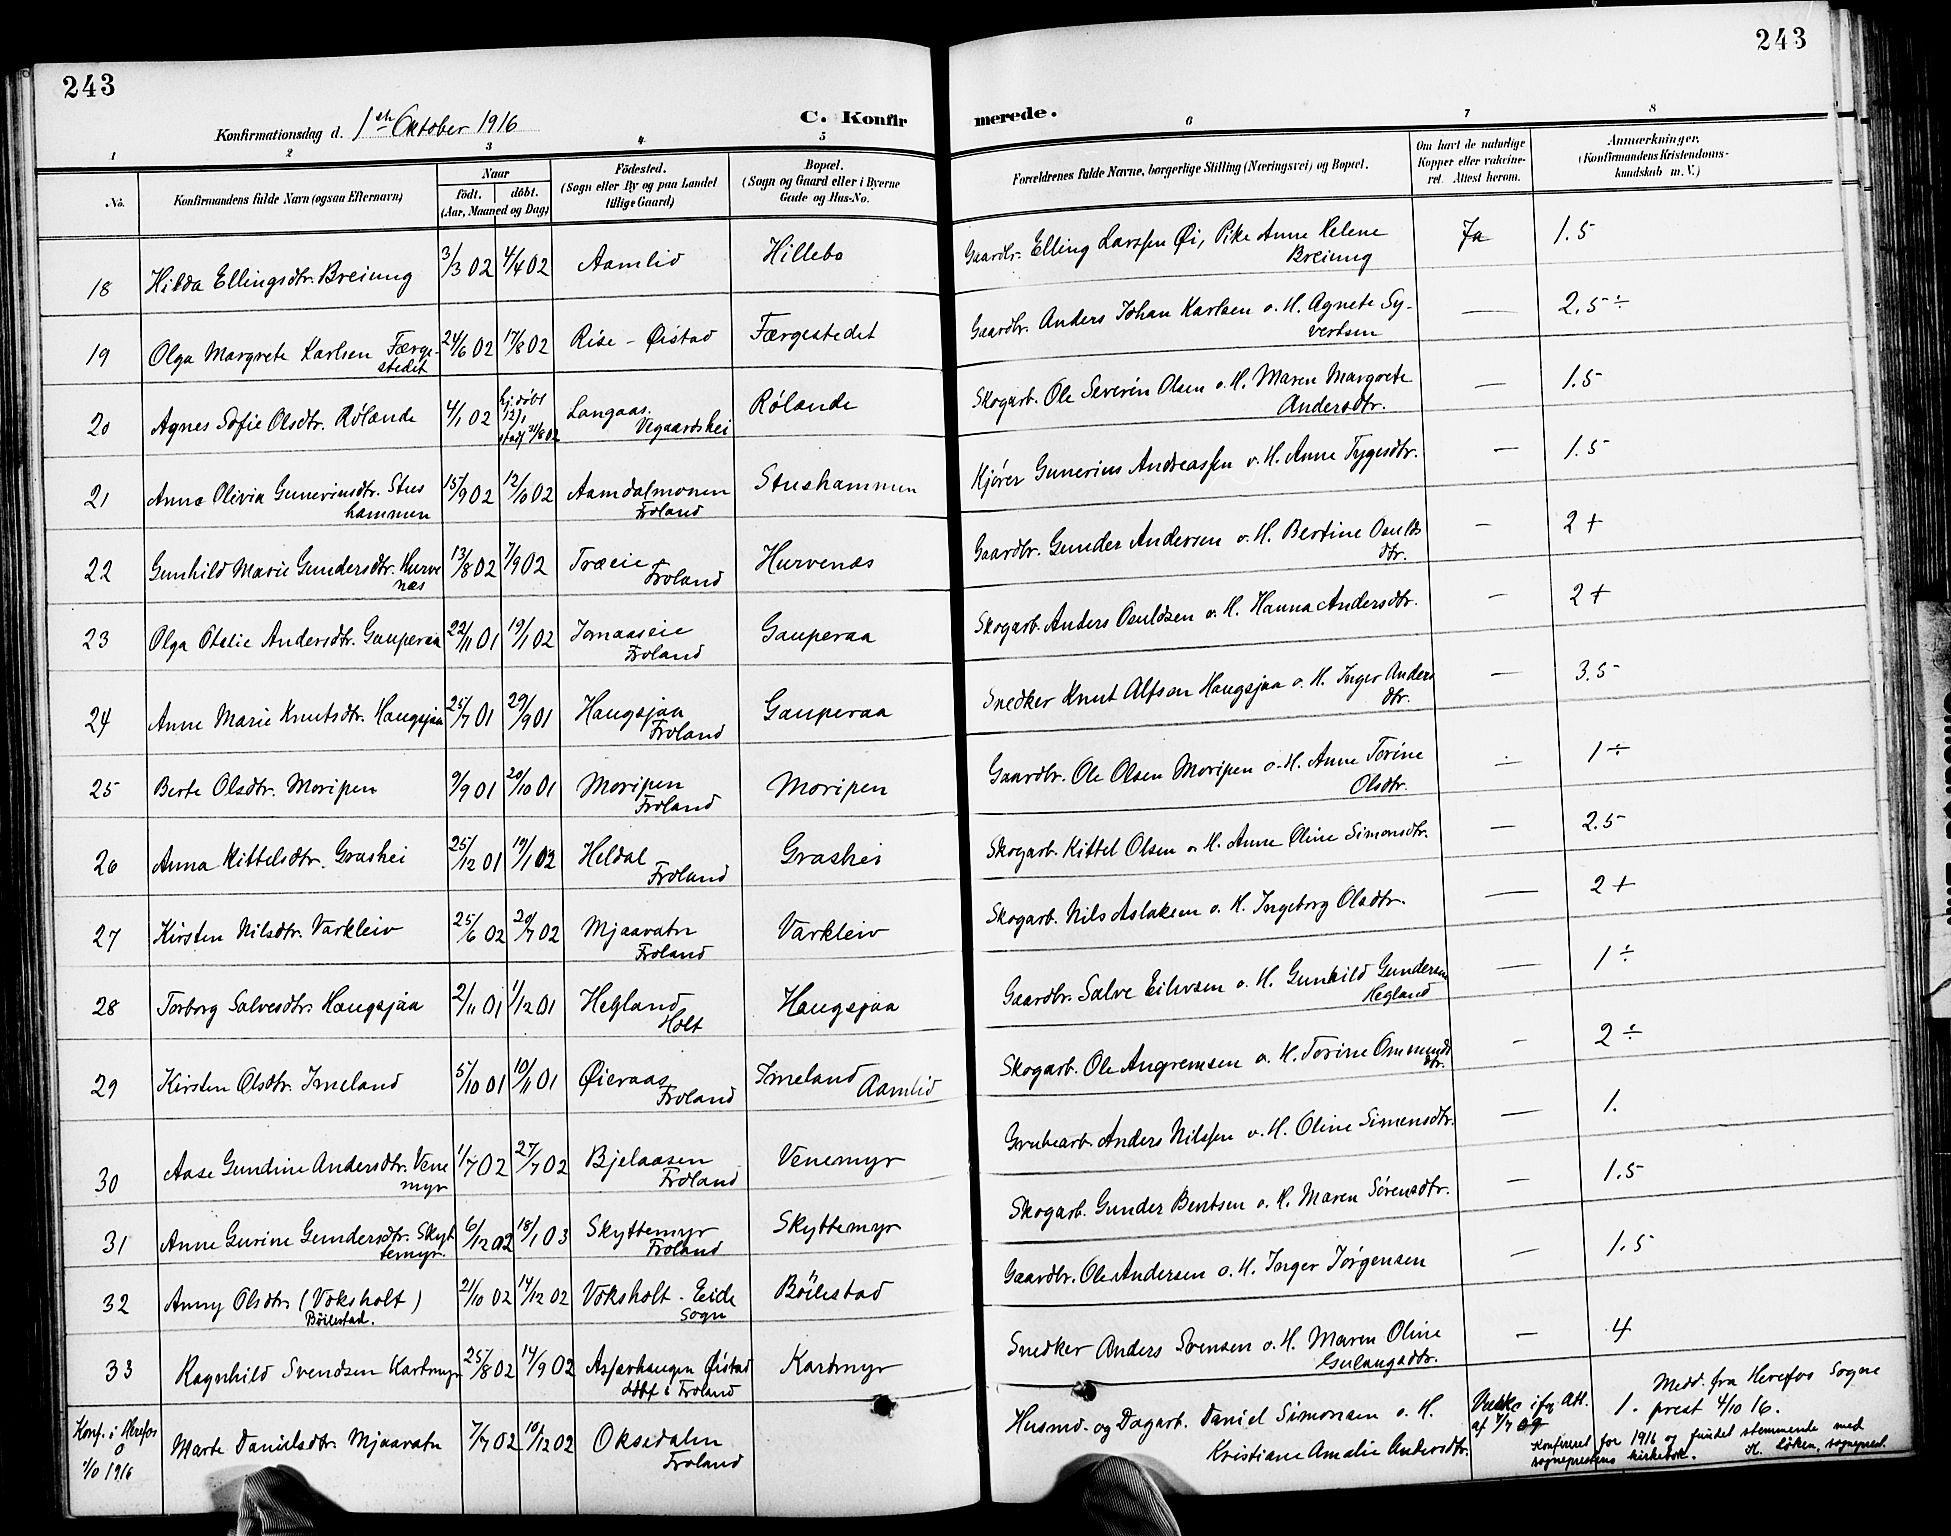 243
243
Konfirmationsdag d. 1ste Oktober 1916
C. Konfir
merede.
1 2 3 4 5 6 7 8
No. Konfirmandens fulde Navn (ogsaa Efternavn) Naar født. døbt. (Aar, Maaned og Dag) Fødested. (Sogn eller By og paa Landet tillige Gaard) Bopæl. (Sogn og Gaard eller i Byerne Gade og Hus-No. Forældrenes fulde Navne, borgerlige Stilling (Næringsvei) og Bopæl. Om havt de naturlige Kopper eller vakcineret. Attest herom. Anmærkninger. (Konfirmandens Kristendomskundskab m. V.)
18 Hilda Ellingsdtr. Breiung 3/3 02 4/4 02 Aamlid Hillebo Gaardbr. Elling Larssen Øi, Pike Anne Helene Breiung Ja 1.5
19 Olga Margrete Karlsen Færgestedet 24/6 02 17/8 02 Rise - Øistad Færgestedet Gaardbr. Anders Johan Karlsen o. H. Agnete Syvertsen — 2.5 ÷
20 Agnes Sofie Olsdtr. Rølande 4/1 02 hj.døbt 12/1 stadf 31/8 02 Langaas. Vegaardshei Rølande Skogarb. Ole Severin Olsen o. H. Maren Margrete Andersdtr. — 1.5
21 Anna Olivia Guneriusdtr. Stushammen 15/9 02 12/10 02 Aamdalmonen Froland Stushammen Kjører Gunerius Andreassen o. H. Anne Tygesdtr. — 1.5
22 Gunhild Marie Gundersdtr. Hurvenæs 13/8 02 7/9 02 Træeie Froland Hurvenæs Gaardbr. Gunder Andersen o. H. Bertine Osulds dtr. — 2 +
23 Olga Otelie Andersdtr. Gauperaa 22/11 01 19/1 02 Jomaaseie Froland Gauperaa Skogarb. Anders Osuldsen o. H. Hanna Andersdtr. — 2 +
24 Anne Marie Knutsdtr. Haugsjaa 25/7 01 29/9 01 Haugsjaa Froland Gauperaa Snedker Knut Alfson Haugsjaa o. H. Inger Anders dtr. — 3.5
25 Berte Olsdtr. Moripen 9/9 01 20/10 01 Moripen Froland Moripen Gaardbr. Ole Olsen Moripen o. H. Anne Torine Olsdtr. — 1 ÷
26 Anna Kittelsdtr. Grashei 25/12 01 19/1 02 Heldal Froland Grashei Skogarb. Kittel Olsen o. H. Anne Oline Simonsdtr. — 2.5
27 Kirsten Nilsdtr. Varkleiv 25/6 02 20/7 02 Mjaavatn Froland Varkleiv Skogarb. Nils Aslaksen o. H. Ingeborg Olsdtr. — 2 +
28 Torborg Salvesdtr. Haugsjaa 2/11 01 1/12 01 Hegland Holt Haugsjaa Gaardbr. Salve Eilevsen o. H. Gunhild Gundersen Hegland — 1 ÷
29 Kirsten Olsdtr. Imeland 5/10 01 10/11 01 Øieraas Froland Imeland Aamlid Skogarb. Ole Angremsen o. H. Torine Ommunds dtr. — 2 ÷
30 Aase Gundine Andersdtr. Venemyr 1/7 02 27/7 02 Bjelaasen Froland Venemyr Grubearb. Anders Nilssen o. H. Oline Simensdtr. — 1.
31 Anne Gurine Gundersdtr. Skyttemyr 6/12 02 18/1 03 Skyttemyr Froland Skyttemyr Skogarb. Gunder Bentsen o. H. Maren Sørensdtr. — 1.5
32 Anny Olsdtr. (Voksholt) Böilestad. 21/10 02 14/12 02 Voksholt - Eide Sogn Böilestad Gaardbr. Ole Andersen o. H. Inger Jørgensen — 1.5
33 Ragnhild Svendsen Kartmyr 25/8 02 14/9 02 Asfarhaugen Øistad døbt i Froland Kartmyr Snedker Anders Svensen o. H. Maren Oline Gulaugsdtr. — 4
Konf. i Herefos 1/10 1916 Marte Danielsdtr. Mjaavatn 7/7 02 10/12 02 Oksedalen Froland Husmd. og Dagarb. Daniel Simonsen o. H. Kristiane Amalie Andersdtr. ifg Att. 1. Medd. fra Herefos Sogneprest 4/10 16.
Konfireret for 1916 og fundet stemmende med
sogneprestens kirkebok. H. Løken, sogneprest.